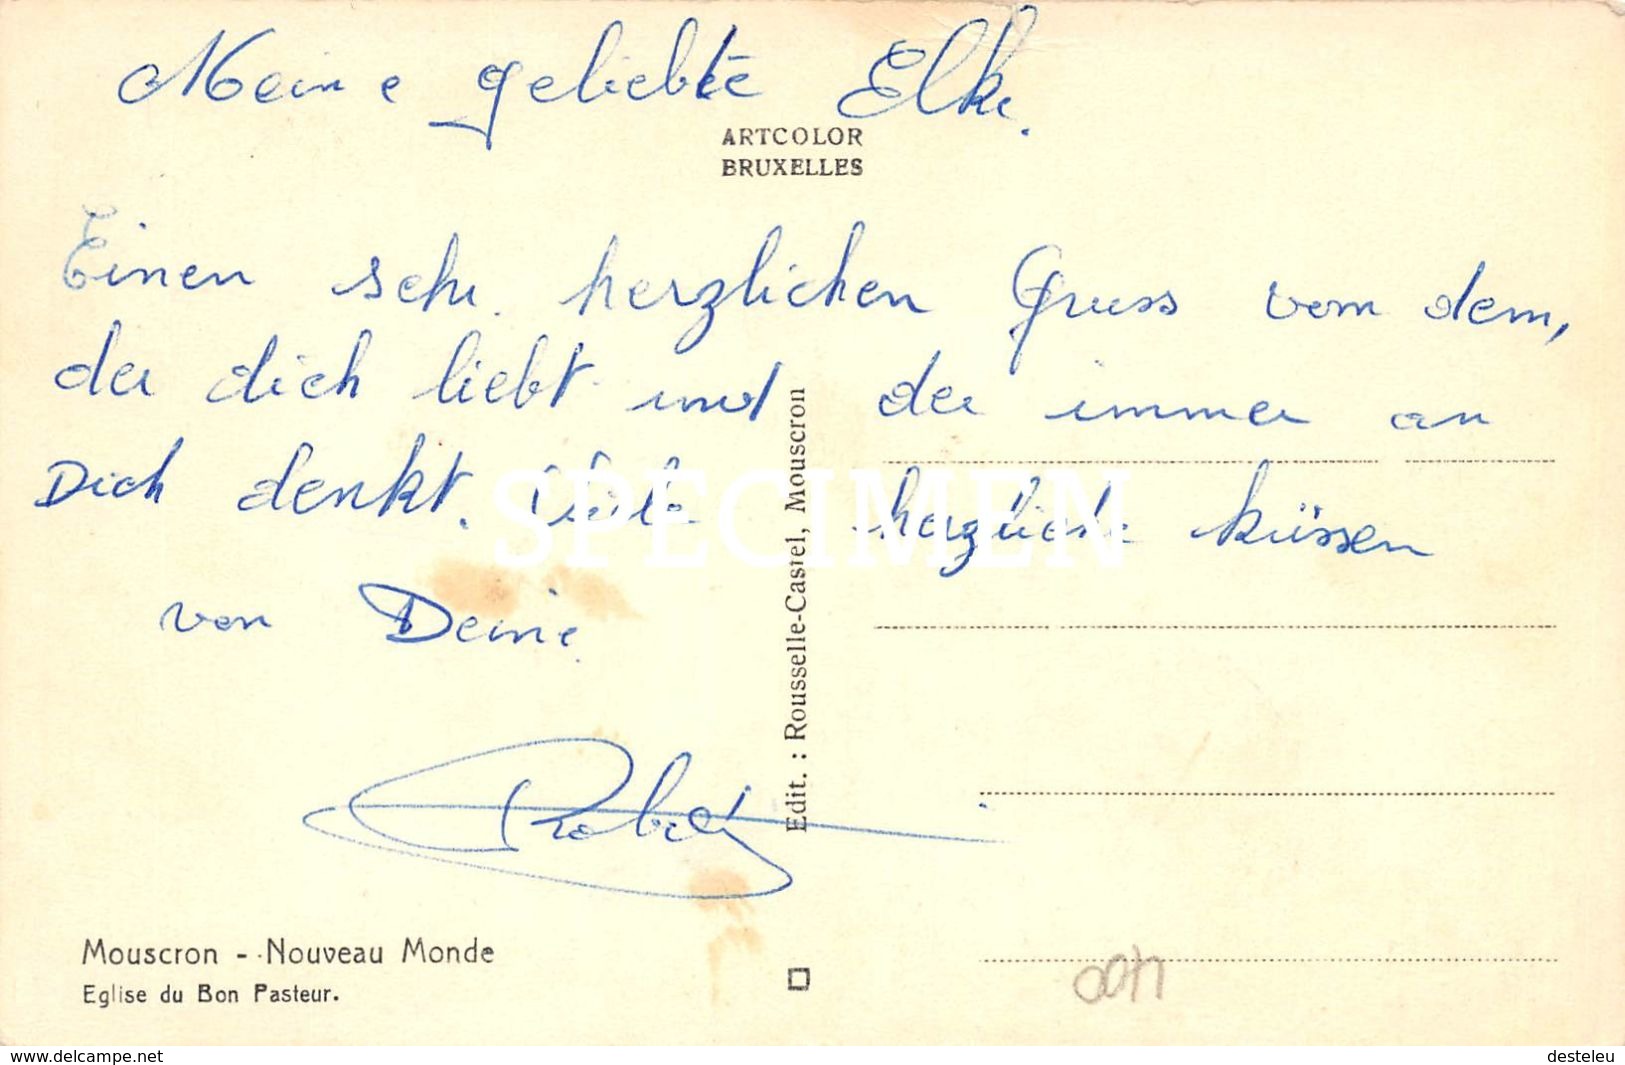 Meine geliebte Elke.
ARTCOLOR
BRUXELLES
Einen sehr herzlichen Gruss vom dem,
der dich liebt und der immer an
Dich denkt. Viele herzliche küssen
von Deine
Edit. : Rousselle-Castel, Mouscron
SPECIMEN
Mouscron - Nouveau Monde
Eglise du Bon Pasteur.
www.delcampe.net
desteleu